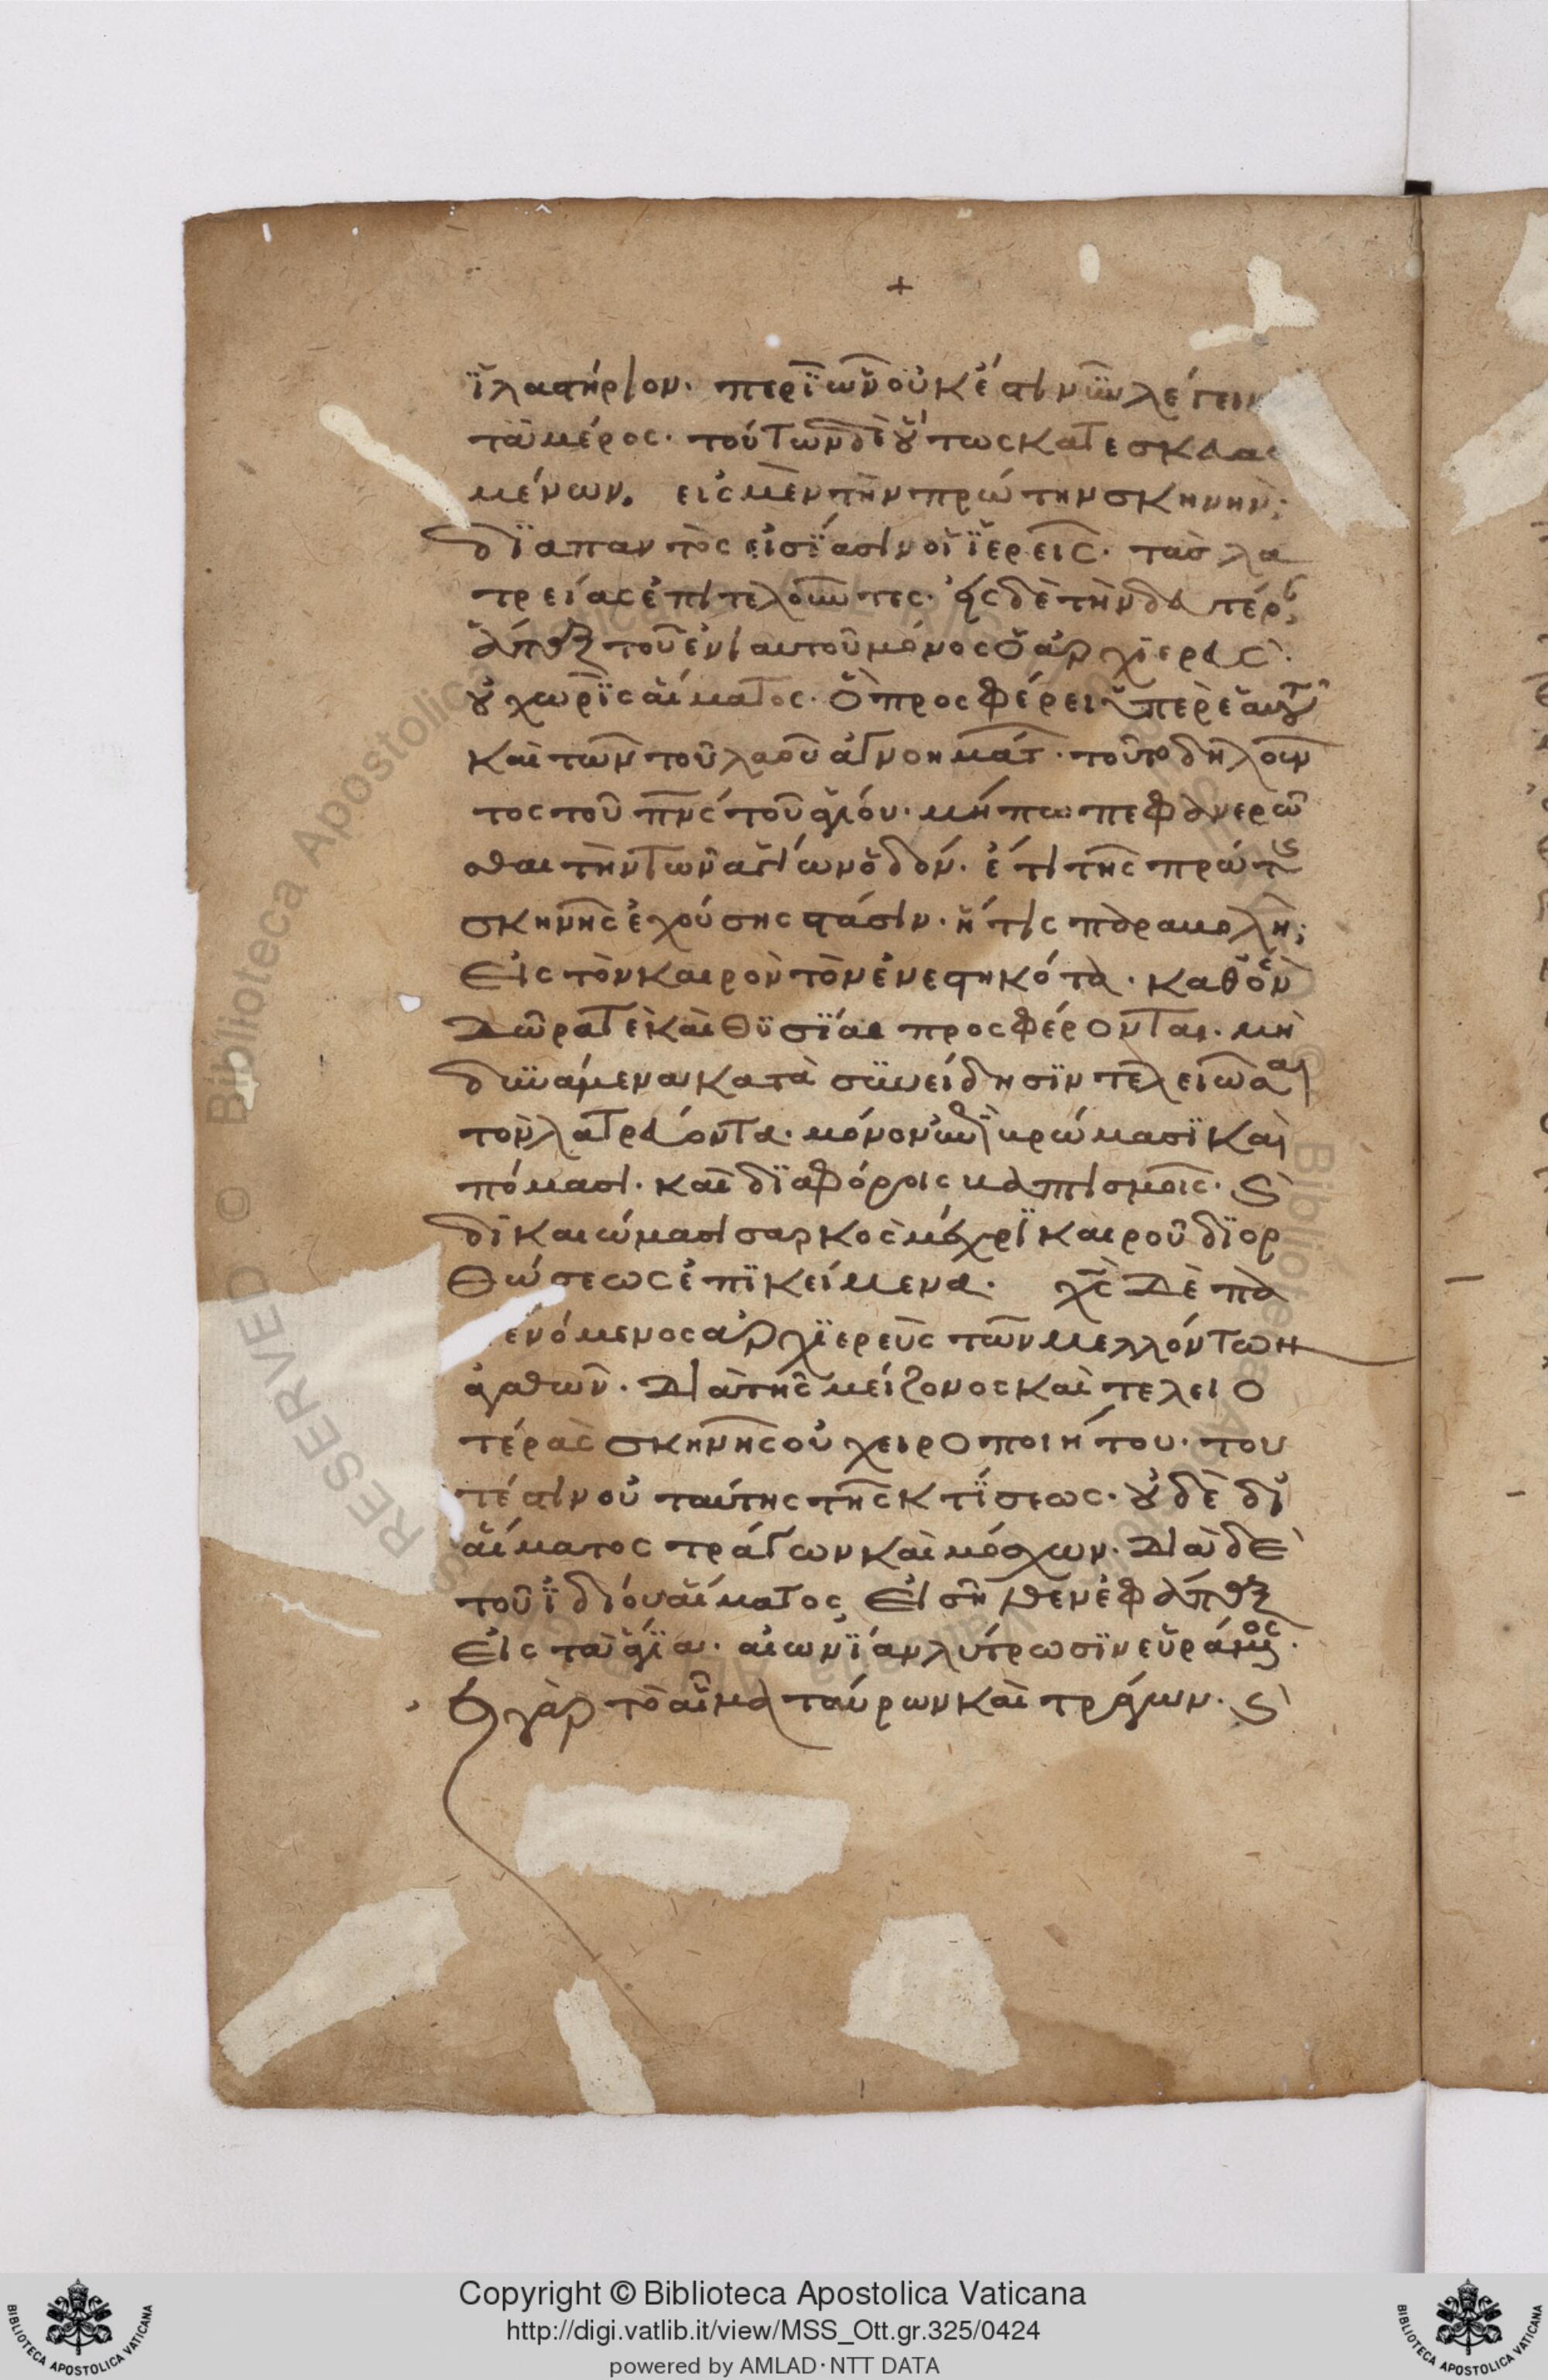 +
ϊλαστήριον· περϊ ὧν οὐκ ἔστιν νῦν λέγειν
τὰ μέρος· τούτων δὲ ȣ́τως κατεσκευασ
μένων. εις μὲν τὴν πρώτην σκηνὴν·
δϊαπαντὸς εἰσϊασιν οἱ ϊερεῖς· τὰσ λα
τρείας ἐπιτελοῦντες· εἰς δὲ τὴν δευτέρ
ἅπαξ τοῦ ἐνιαυτοῦ μόνος ὁ ἀρχϊερεὺς·
ȣ χωρϊς αἵματος· ὃ προσφέρει ὑπὲρ ἑαυτȣ͂
καὶ τῶν τοῦ λαοῦ ἀγνοημάτ· τοῦτο δηλοῦν
τος τοῦ πνς τοῦ ἁγίου· μήπω πεφανερῶ
σθαι τὴν τῶν ἁγίων ὁδόν· ἔτι τῆς πρώτης
σκηνῆς ἐχούσης στάσιν· ἥτις παραβολὴ·
Εἰς τὸν καιρὸν τὸν ἐνεστηκότα· καθ ὃν
Δῶρα τὲ καὶ Θϋσϊαι προσφέρονται· μὴ
δυνάμεναι κατὰ συνείδησϊν τελειῶσαι
τὸν λατρεύοντα· μόνον ἐπὶ βρώμασϊ καὶ
πόμασι· καὶ δϊαφόροις βαπτισμοῖς· ϗ
δϊκαιώμασι σαρκὸς μέχρϊ καιροῦ δϊορ
Θώσεως ἐπϊκείμενα· χς Δὲ πα
ενόμενος ἀρχϊερεὺς τῶν μελλόντων
ἀγαθῶν· Διὰ τῆς μείζονος καὶ τελειο
τέρας σκηνῆς οὐ χειροποιήτου· του
τέστιν οὐ ταύτης τῆς κτϊσεως· ȣ̓δὲ δι
αἵματος τράγων καὶ μόσχων· Διὰ δὲ
τοῦ ϊδίου αἵματος Εἰσῆλθεν ἐφάπαξ
Εἰς τὰ ἅγϊα· αἰωνϊαν λύτρωσϊν εὑράμενος·
Εἰ γὰρ τὸ αἷμα ταύρων καὶ τράγων· ϗ
Copyright © Biblioteca Apostolica Vaticana
http://digi.vatlib.it/view/MSS_Ott.gr.325/0424
powered by AMLAD·NTT DATA
BIBLIOTECA APOSTOLICA VATICANA
BIBLIOTECA APOSTOLICA VATICANA